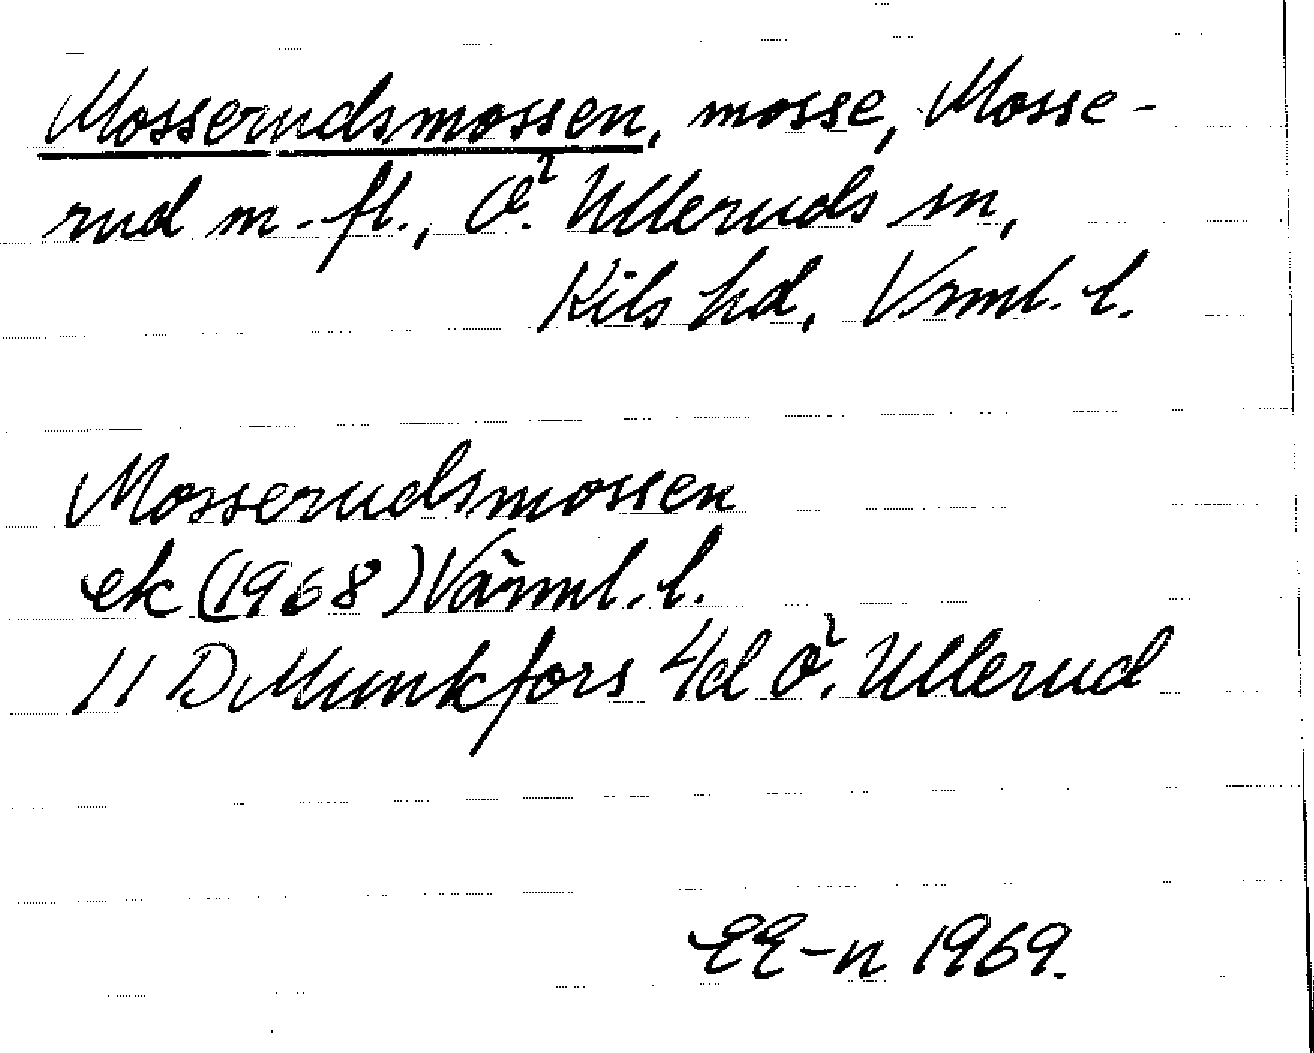 Mosserudsmossen, mosse, Mosse-
rud m.fl., Ö. Ulleruds sn,
Kils hd, Vrml. l.
Mosserudsmossen
ek (1968) Värml. l.
11 D Munkfors 4d Ö. Ullerud
EE-n 1969.